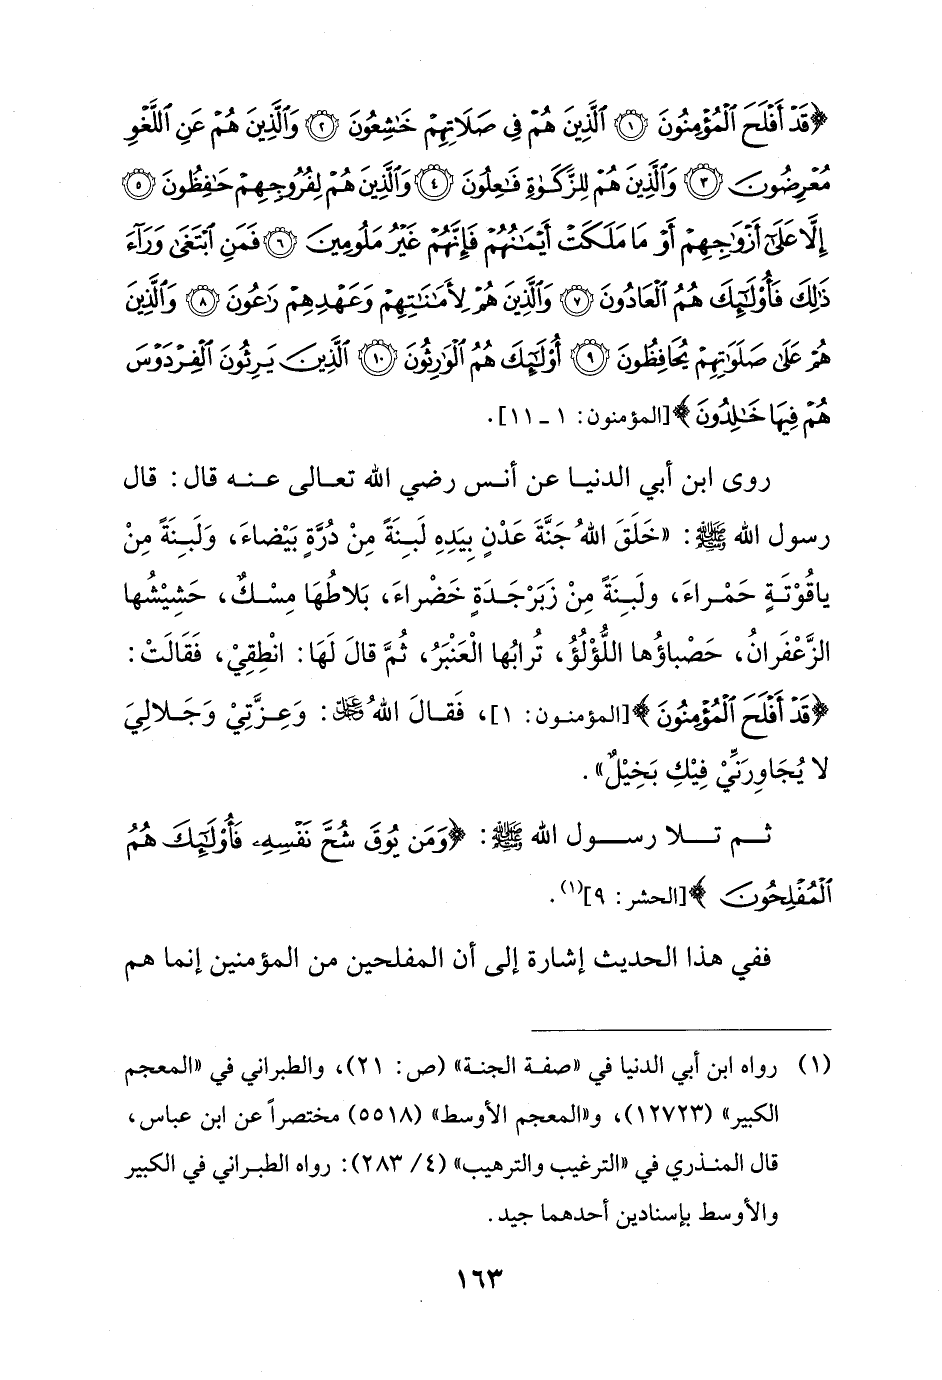 ﴿قَدْ أَفْلَحَ ٱلْمُؤْمِنُونَ ١ ٱلَّذِينَ هُمْ فِى صَلَاتِهِمْ خَٰشِعُونَ ٢ وَٱلَّذِينَ هُمْ عَنِ ٱللَّغْوِ
مُعْرِضُونَ ٣ وَٱلَّذِينَ هُمْ لِلزَّكَوٰةِ فَٰعِلُونَ ٤ وَٱلَّذِينَ هُمْ لِفُرُوجِهِمْ حَٰفِظُونَ ٥
إِلَّا عَلَىٰٓ أَزْوَٰجِهِمْ أَوْ مَا مَلَكَتْ أَيْمَٰنُهُمْ فَإِنَّهُمْ غَيْرُ مَلُومِينَ ٦ فَمَنِ ٱبْتَغَىٰ وَرَآءَ
ذَٰلِكَ فَأُو۟لَٰٓئِكَ هُمُ ٱلْعَادُونَ ٧ وَٱلَّذِينَ هُمْ لِأَمَٰنَٰتِهِمْ وَعَهْدِهِمْ رَٰعُونَ ٨ وَٱلَّذِينَ
هُمْ عَلَىٰ صَلَوَٰتِهِمْ يُحَافِظُونَ ٩ أُو۟لَٰٓئِكَ هُمُ ٱلْوَٰرِثُونَ ١٠ ٱلَّذِينَ يَرِثُونَ ٱلْفِرْدَوْسَ
هُمْ فِيهَا خَٰلِدُونَ﴾ [المؤمنون: ١ ـ ١١].
روى ابن أبي الدنيا عن أنس رضي الله تعالى عنه قال: قال
رسول الله ﷺ: «خَلَقَ اللهُ جَنَّةَ عَدْنٍ بِيَدِهِ لَبِنَةً مِنْ دُرَّةٍ بَيْضاءَ، وَلَبِنَةً مِنْ
ياقُوْتَةٍ حَمْراءَ، ولَبِنَةً مِنْ زَبَرْجَدَةٍ خَضْراءَ، بَلاطُهَا مِسْكٌ، حَشِيْشُها
الزَّعْفَرانُ، حَصْباؤُها اللُّؤْلُؤُ، تُرابُها الْعَنْبَرُ، ثُمَّ قالَ لَهَا: انْطِقِيْ، فَقَالَتْ:
﴿قَدْ أَفْلَحَ ٱلْمُؤْمِنُونَ﴾ [المؤمنون: ١]، فَقالَ اللهُ ﷻ: وَعِزَّتِيْ وَجَلالِيَ
لا يُجَاوِرَنِّيْ فِيْكِ بَخِيْلٌ».
ثم تلا رسول الله ﷺ: ﴿وَمَن يُوقَ شُحَّ نَفْسِهِۦ فَأُو۟لَٰٓئِكَ هُمُ
ٱلْمُفْلِحُونَ﴾ [الحشر: ٩](١).
ففي هذا الحديث إشارة إلى أن المفلحين من المؤمنين إنما هم
(١) رواه ابن أبي الدنيا في «صفة الجنة» (ص: ٢١)، والطبراني في «المعجم
الكبير» (١٢٧٢٣)، و«المعجم الأوسط» (٥٥١٨) مختصراً عن ابن عباس،
قال المنذري في «الترغيب والترهيب» (٤/ ٢٨٣): رواه الطبراني في الكبير
والأوسط بإسنادين أحدهما جيد.
١٦٣